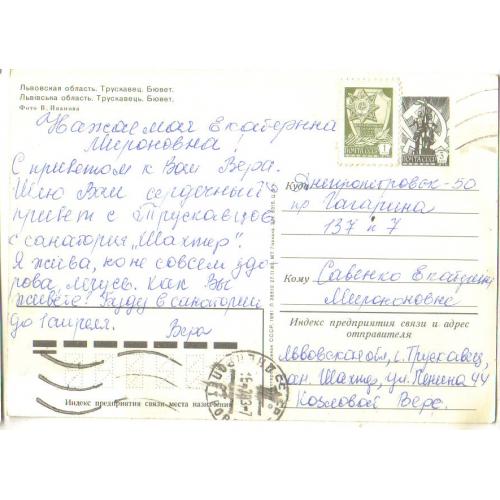 Львовская область. Трускавец. Бювет.
Львівська область. Трускавець. Бювет.
Фото В. Иванова
Уважаемая Екатерина
Мироновна!
С приветом к Вам Вера.
Шлю Вам сердечный
привет с Трускавцов
с санатория „Шахтер".
Я жива, но не совсем здо
рова, лечусь. Как Вы
живете? Буду в санатории
до 1 апреля.
Вера
ПОЧТА СССР
1
ПОЧТА СССР
3
Куда Днепропетровск-50
пр Гагарина
137 к 7
Кому Савенко Екатерине
Мироновне
Индекс предприятия связи и адрес
отправителя
Львовская обл, г. Трускавец,
сан. Шахтер, ул. Ленина 44
Козловой Вере.
Индекс предприятия связи места назначения